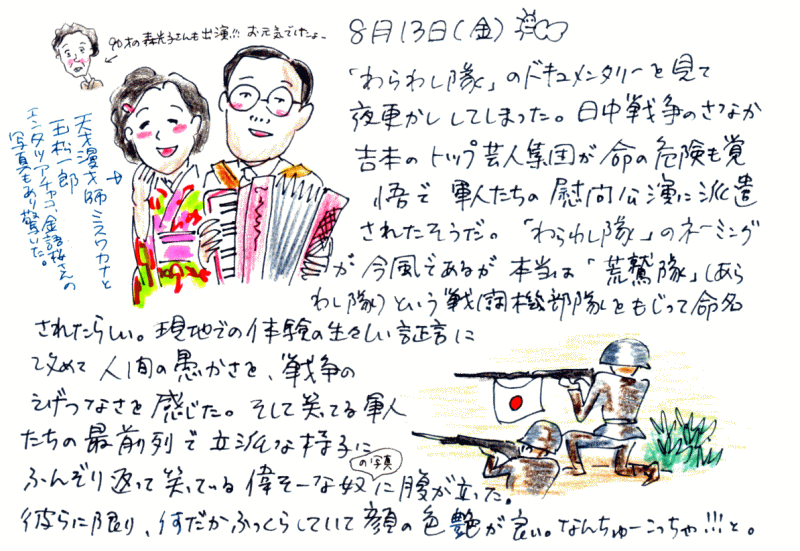 90才の森光子さんも出演!!! お元気でしたょ〜
8月13日(金)
「わらわし隊」のドキュメンタリーを見て
夜更かししてしまった。日中戦争のさなか
吉本のトップ芸人集団が命の危険も覚
悟で 軍人たちの慰問公演に派遣
されたそうだ。「わらわし隊」のネーミング
が今風であるが本当は「荒鷲隊」(あら
わし隊)という戦闘機部隊をもじって命名
されたらしい。現地での体験の生々しい証言に
改めて人間の愚かさを、戦争の
えげつなさを感じた。そして笑てる軍人
たちの最前列で立派な様子に
ふんぞり返って笑っている偉そーな奴の写真に腹が立った。
彼らに限り、何だかふっくらしていて顔の色艶が良い。なんちゅーこっちゃ!!!と。
天才漫才師ミスワカナと
玉松一郎
エンタツアチャコ、金語楼さんの
写真もあり驚いた。